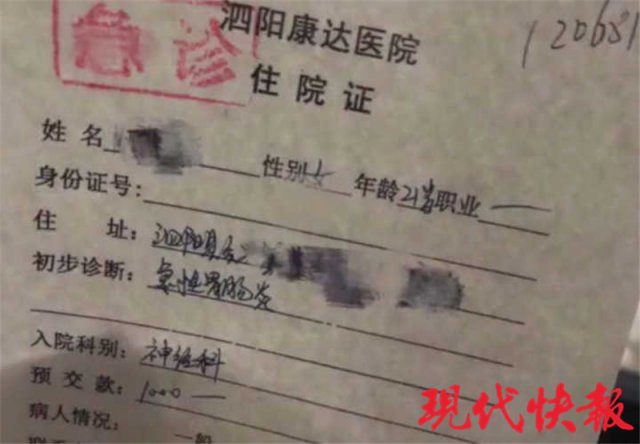 泗阳康达医院
120681
急诊
住院证
姓名 性别 女 年龄 21岁 职业 一
身份证号:
住址: 泗阳县
初步诊断: 急性胃肠炎
入院科别: 神经科
预交款: 1000 —
病人情况: 一般
现代快报